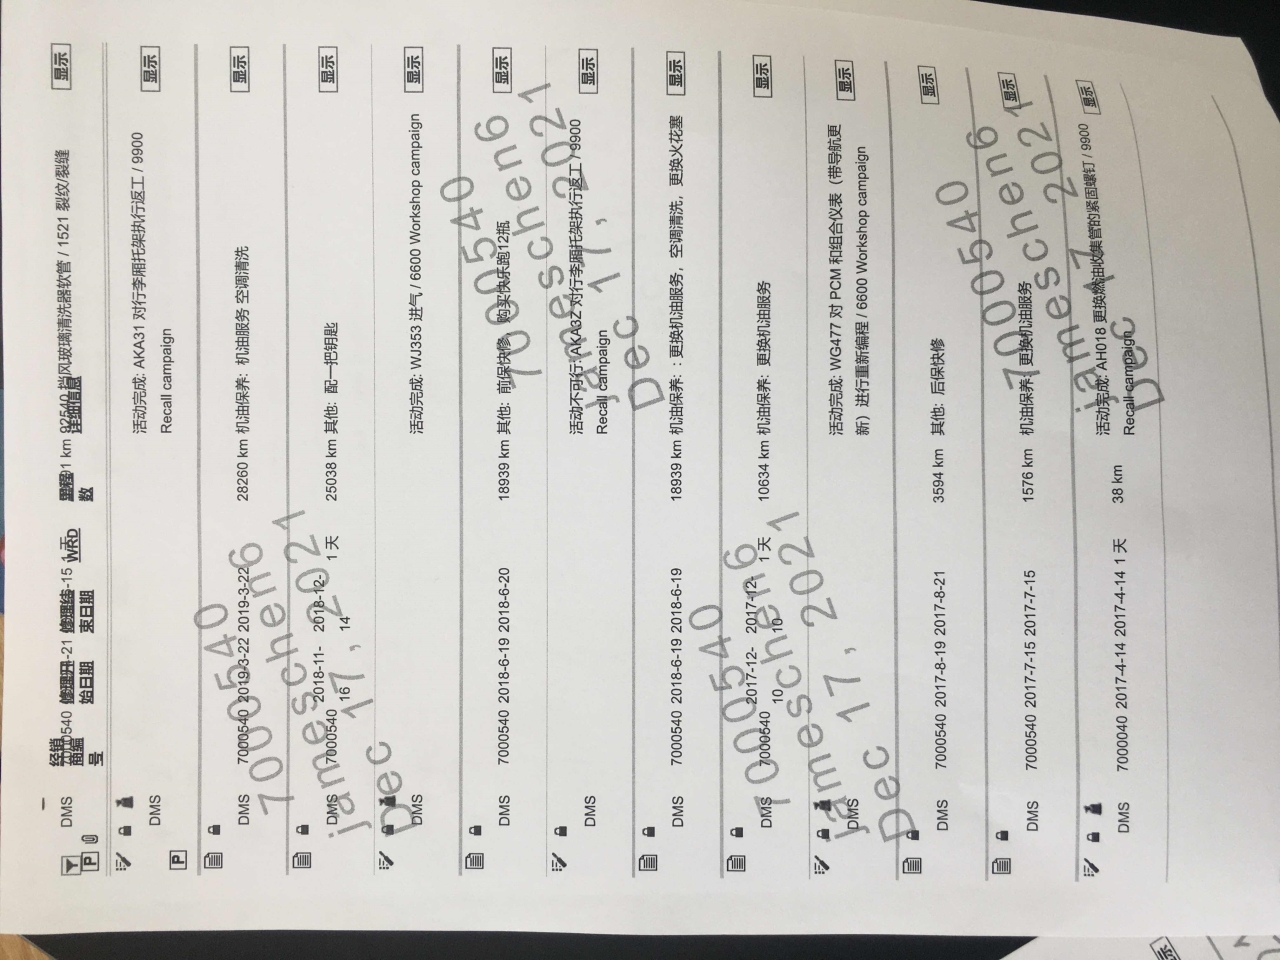 DMS
92540 挡风玻璃清洗器软管 / 1521 裂纹/裂缝
显示
经销商编号
始日期
束日期
WRD
详细信息
P
DMS
活动完成: AKA31 对行李厢托架执行返工 / 9900
Recall campaign
显示
P
DMS 7000540 2019-3-22 2019-3-22 28260 km 机油保养: 机油服务 空调清洗
显示
DMS 7000540 2018-11-16 2018-12-14 1 天 25038 km 其他: 配一把钥匙
显示
DMS 活动完成: WJ353 进气 / 6600 Workshop campaign
显示
DMS 7000540 2018-6-19 2018-6-20 18939 km 其他: 前保快修, 购买快乐跑12瓶
显示
DMS
活动不可行: AKA3Z 对行李厢托架执行返工 / 9900
Recall campaign
显示
DMS 7000540 2018-6-19 2018-6-19 18939 km 机油保养: : 更换机油服务, 空调清洗, 更换火花塞
显示
DMS 7000540 2017-12-10 2017-12-10 1 天 10634 km 机油保养: 更换机油服务
显示
DMS
活动完成: WG477 对 PCM 和组合仪表（带导航更
新）进行重新编程 / 6600 Workshop campaign
显示
DMS 7000540 2017-8-19 2017-8-21 3594 km 其他: 后保快修
显示
DMS 7000540 2017-7-15 2017-7-15 1576 km 机油保养: 更换机油服务
显示
DMS 7000040 2017-4-14 2017-4-14 1 天 38 km 活动完成: AH018 更换燃油收集管的紧固螺钉 / 9900
Recall campaign
显示
7000540
7000540
jameschen6
jameschen6
Dec 17, 2021
Dec 17, 2021
7000540
7000540
jameschen6
jameschen6
Dec 17, 2021
Dec 17, 2021
显示